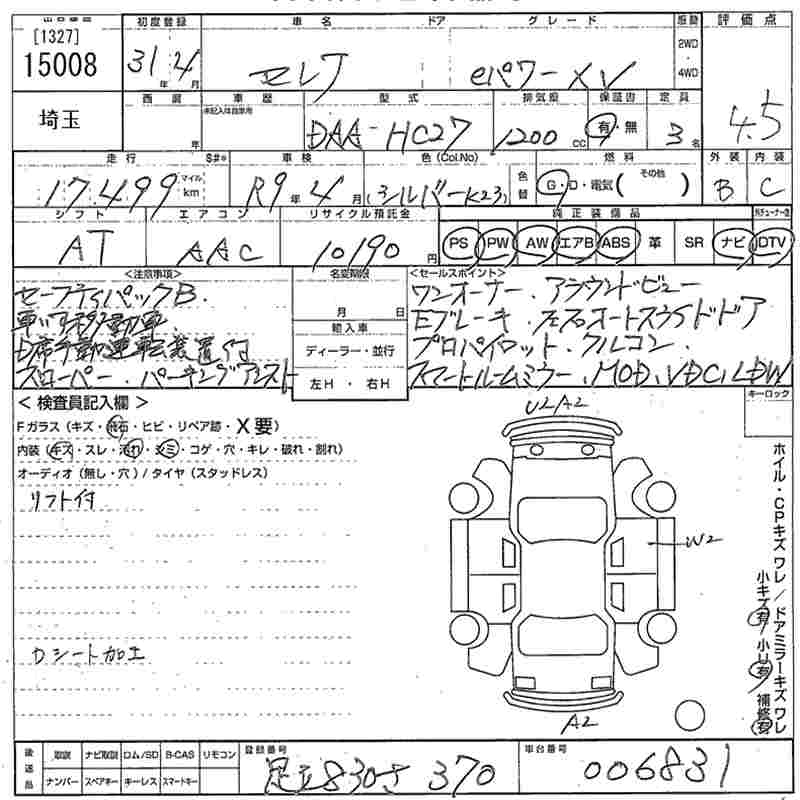 [1327]
15008
埼玉
初度登録
31年4月
車名
ドア
グレード
セレナ
eパワー XV
2WD
・
4WD
評価点
4.5
車歴
未記入は自家用
型式
排気量
保証書
定員
年
DAA-HC27
1200cc
有・無
3名
走行
S#*
車検
色(Col.No)
色替
燃料
外装
内装
17,499
マイル
km
R9年4月
(シルバーK23)
G・D・電気( その他 )
B
C
シフト
エアコン
リサイクル預託金
純正装備品
AT
AAC
10190円
PS PW AW エアB ABS 革 SR ナビ DTV
<注意事項>
セーフティパックB.
車いす移動車.
スローパー. パーキングアシスト
名変期限
月 日
輸入車
ディーラー・並行
左H・右H
<セールスポイント>
ワンオーナー. アラウンドビュー
Eブレーキ. 左右オートスライドドア
プロパイロット. クルコン.
スマートルームミラー. MOD. VDC. LDW
<検査員記入欄>
Fガラス(キズ・飛石・ヒビ・リペア跡・X要)
内装(キズ・スレ・汚れ・シミ・コゲ・穴・キレ・破れ・割れ)
オーディオ(無し・穴)/タイヤ(スタッドレス)
リフト付
Dシート加工
キーロック
U2/A2
W2
A2
ホイル・CPキズ ワレ/ドアミラーキズ ワレ
小キズ有/小U有 補修有
後送品
取説
ナビ取説
ロム/SD
B-CAS
リモコン
ナンバー
スペアキー
キーレス
スマートキー
登録番号
足立830さ 370
車台番号
006831